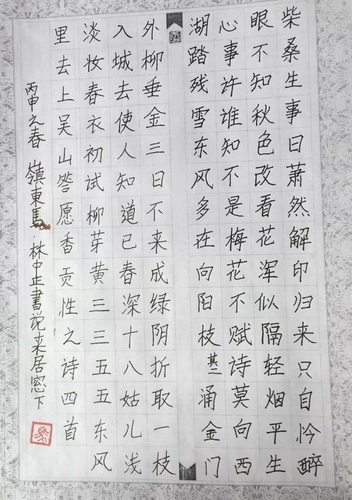 柴桑生事日萧然解印归来只自忤醉
眼不知秋色改看花浑似隔轻烟平生
心事许谁知不是梅花不赋诗莫向西
湖踏残雪东风多在向阳枝 其二 涌金门
外柳垂金三日不来成绿阴折取一枝
入城去使人知道已春深十八姑儿浅
淡妆春衣初试柳芽黄三三五五东风
里去上吴山答愿香贡性之诗四首
丙申之春 嶺東馬林中正書於来居窓下